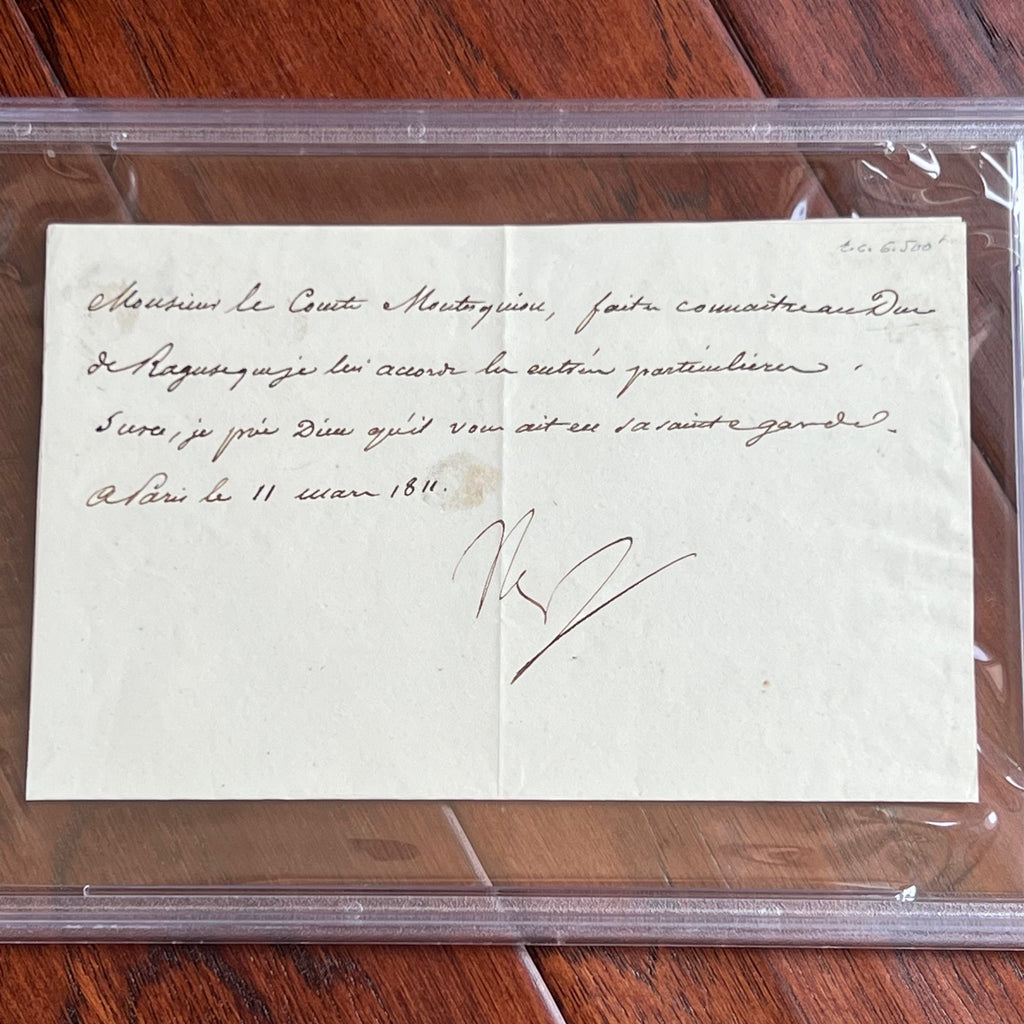 t.c. 6.500
Monsieur le Comte Montesquiou, faites connaitre au Duc
de Raguse que je lui accorde les entrées particulières.
Sur ce, je prie Dieu qu'il vous ait en sa sainte garde.
A Paris le 11 mars 1811.
Nap